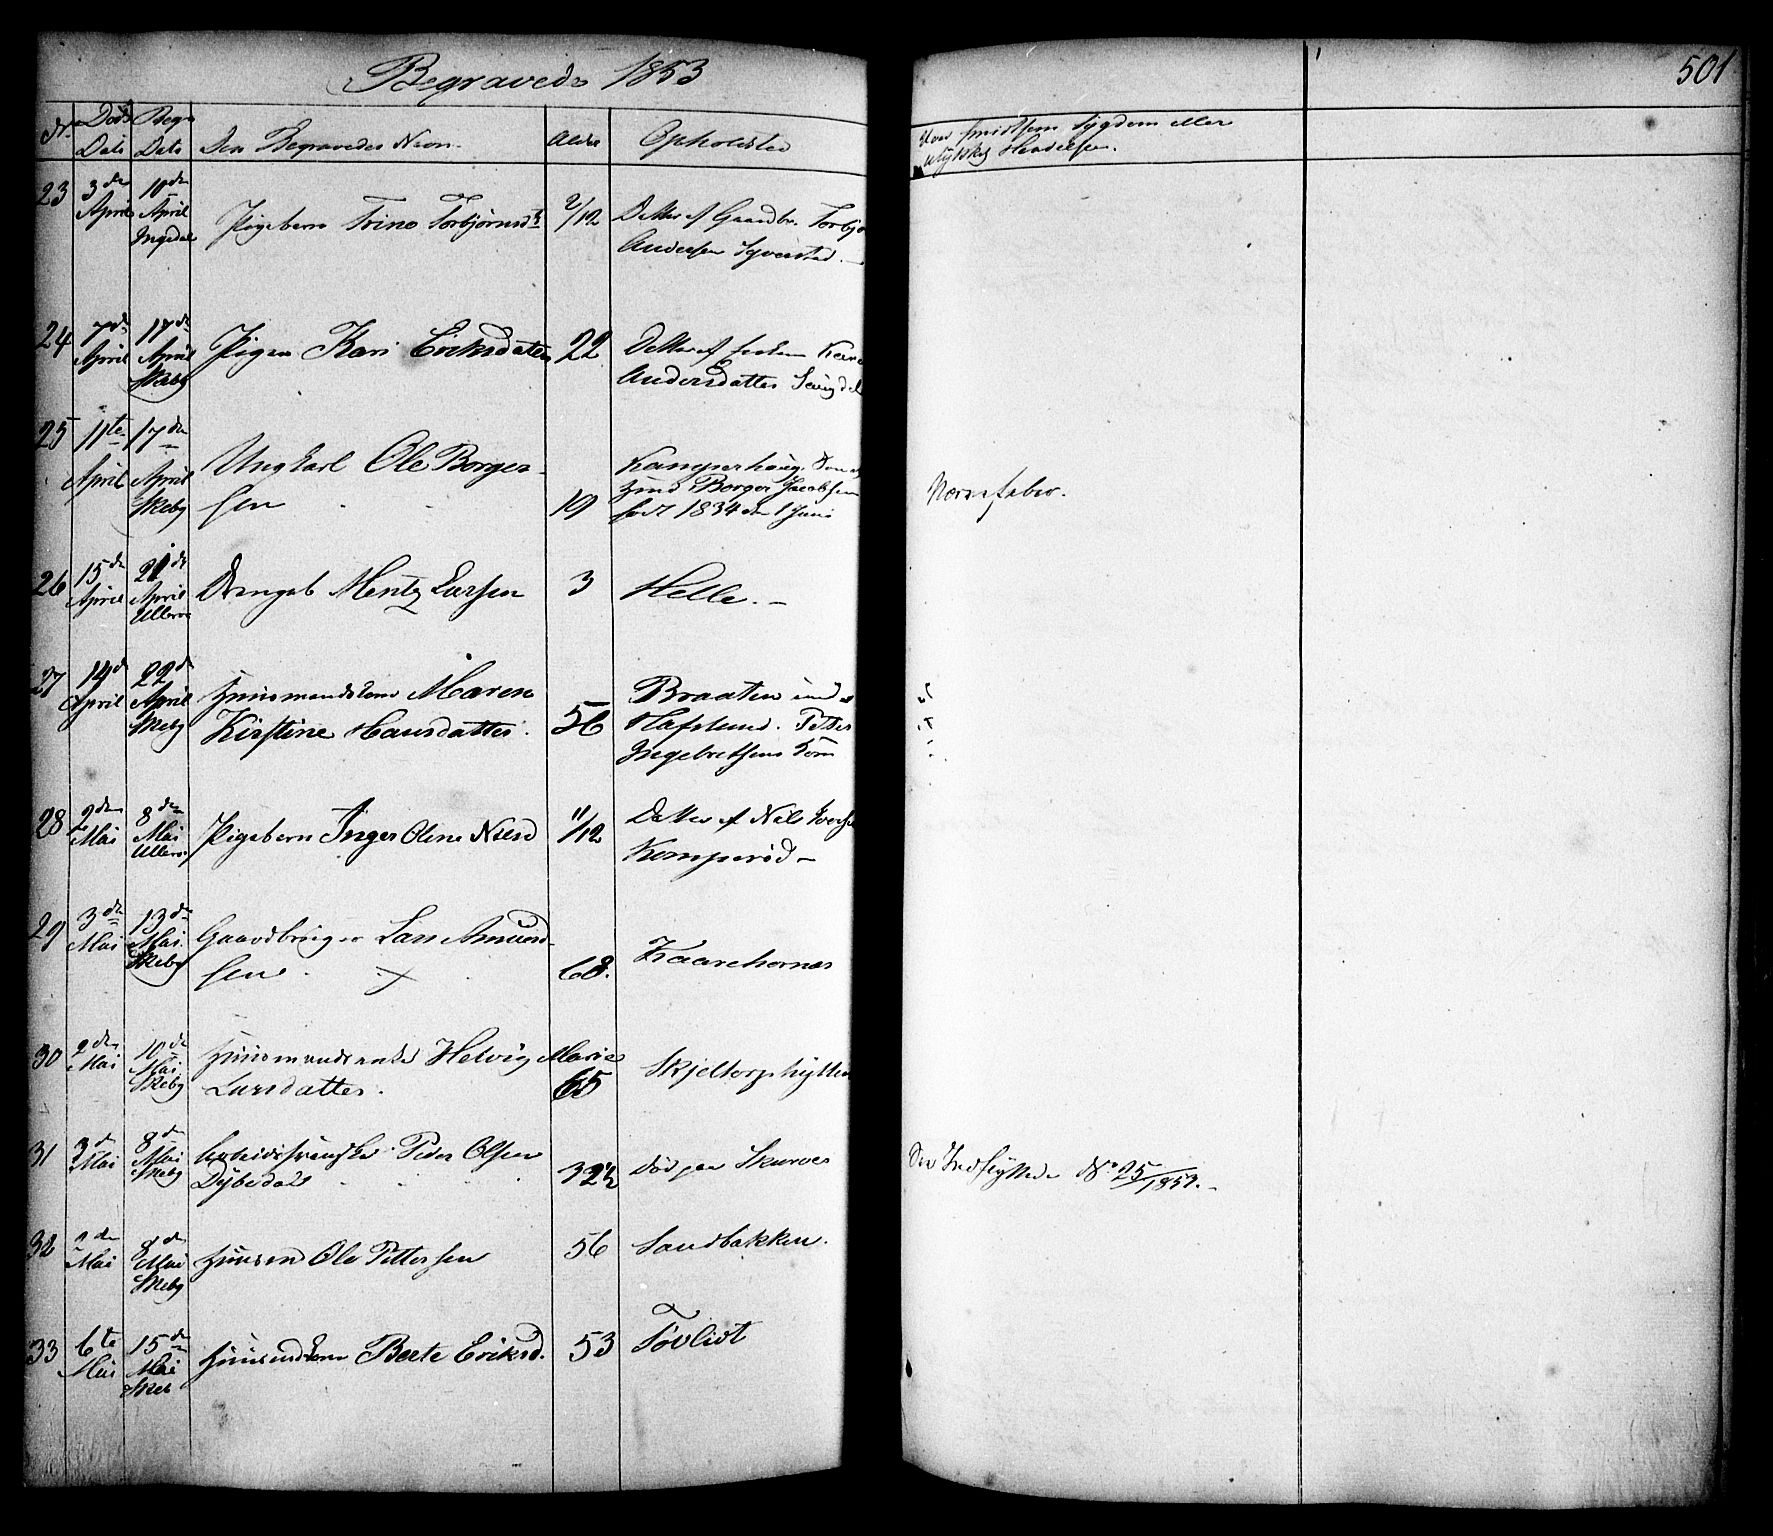 Begravede 1853
501
No Døds Dato
Begr. Dato
Den Begravedes Navn.
Alder
Opholdsted
smitsom Sygdom eller
ulykkelig Hendelse.
23 3die April 10de April Ingedal Pigebarn Trine Torbjørnsd. 2/12 Datter af Gaardbr. Torbjø
Andersen Syverstad.
24 7de April 17de April Skieby Pigen Kari Eriksdatter 22 Datter af Kari
Andersdatter
25 11te April 17de April Skieby Ungkarl Ole Borger-
sen 19 Kamperhaug. Søn af
Huusmd Borger Jacobsen
født 1834 den 1 Juni
Nervefeber.
26 15de April 21de April Ullerø Drengeb. Mentz Larsen 3 Helle.
27 14de April 22de April Skieby Huusmandskone Maren
Kirstine Hansdatter. 56 Braaten under
Hafslund. Petter
Ingebretsens Kone
28 2den Mai 8de Mai Ullerø Pigebarn Inger Oline Nilsd 11/12 Datter af Nils Iversen
Komperød
29 3die Mai 13de Mai Skieby Gaardbruger Lars Amund-
sen 68. Kaarehornes
30 2den Mai 10de Mai Skieby Huusmandsenke Helvig Marie
Larsdatter. 65 Skjeltorphytten
31 3die Mai 8de Mai Skieby Arbeids Svenske Peder Olsen
Dybedahl 32½ død paa Skurves
See Indflyttede No 25/1853.
32 2den Mai 8de Mai Skieby Huusmd Ole Pettersen 56 Sandbakken.
33 6te Mai 15de Mai Skieb Huusmdskone Berte Eriksd. 53 Tøvlidt